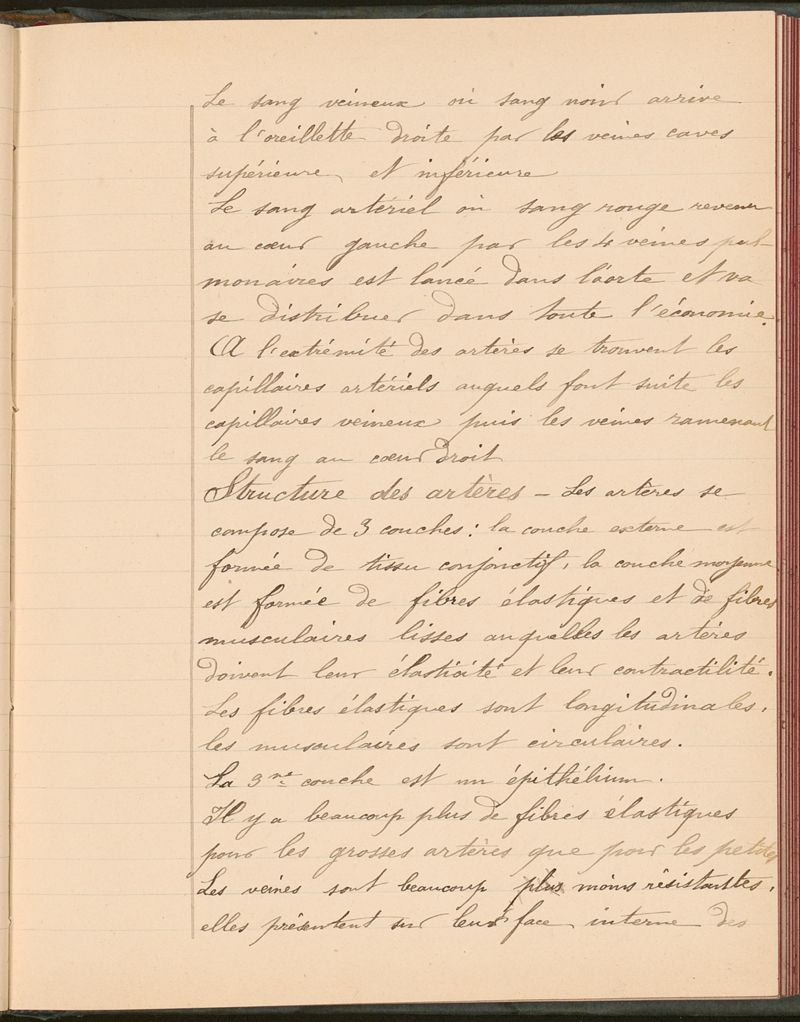 Le sang veineux ou sang noir arrive
à l'oreillette droite par les veines caves
supérieure et inférieure
Le sang artériel ou sang rouge revenu
au cœur gauche par les 4 veines pul-
monaires est lancé dans l'aorte et va
se distribuer dans toute l'économie.
A l'extrémité des artères se trouvent les
capillaires artériels auquels font suite les
capillaires veineux puis les veines ramenant
le sang au cœur droit
Structure des artères - Les artères se
compose de 3 couches : la couche externe est
formée de tissu conjonctif, la couche moyenne
est formée de fibres élastiques et de fibres
musculaires lisses auquelles les artères
doivent leur élasticité et leur contractilité.
Les fibres élastiques sont longitudinales,
les musculaires sont circulaires.
La 3me couche est un épithélium.
Il y a beaucoup plus de fibres élastiques
pour les grosses artères que pour les petites
Les veines sont beaucoup plus moins résistantes,
elles présentent sur leur face interne des